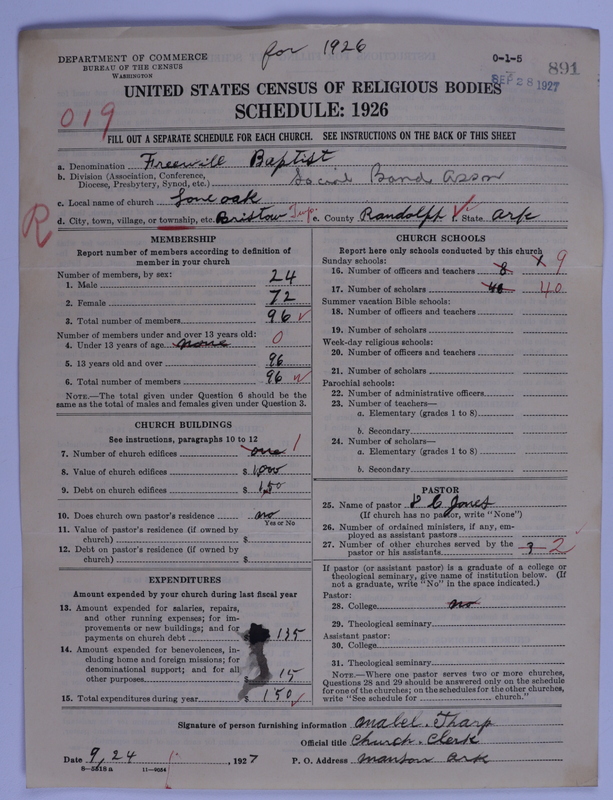 for 1926
DEPARTMENT OF COMMERCE
BUREAU OF THE CENSUS
WASHINGTON
0-1-5
891
SEP 28 1927
UNITED STATES CENSUS OF RELIGIOUS BODIES
SCHEDULE: 1926
019
FILL OUT A SEPARATE SCHEDULE FOR EACH CHURCH. SEE INSTRUCTIONS ON THE BACK OF THIS SHEET
a. Denomination Freewill Baptist
b. Division (Association, Conference, Diocese, Presbytery, Synod, etc.) Social Band Assn
c. Local name of church Lone oak
R
d. City, town, village, or township, etc. Bristow Twp. e. County Randolph f. State Ark
MEMBERSHIP
Report number of members according to definition of
member in your church
Number of members, by sex:
1. Male 24
2. Female 72
3. Total number of members 96
Number of members under and over 13 years old:
4. Under 13 years of age none 0
5. 13 years old and over 96
6. Total number of members 96
NOTE.—The total given under Question 6 should be
same as the total of males and females given under Question 3.
CHURCH BUILDINGS
See instructions, paragraphs 10 to 12
7. Number of church edifices one 1
8. Value of church edifices $
9. Debt on church edifices $ 150
10. Does church own pastor's residence no
Yes or No
11. Value of pastor's residence (if owned by
church) $
12. Debt on pastor's residence (if owned by
church) $
EXPENDITURES
Amount expended by your church during last fiscal year
13. Amount expended for salaries, repairs,
and other running expenses; for im-
provements or new buildings; and for
payments on church debt 135
14. Amount expended for benevolences, in-
cluding home and foreign missions; for
denominational support; and for all
other purposes $ 15
15. Total expenditures during year $ 150
CHURCH SCHOOLS
Report here only schools conducted by this church
Sunday schools:
16. Number of officers and teachers 8 x 9
17. Number of scholars 40
Summer vacation Bible schools:
18. Number of officers and teachers
19. Number of scholars
Week-day religious schools:
20. Number of officers and teachers
21. Number of scholars
Parochial schools:
22. Number of administrative officers
23. Number of teachers—
a. Elementary (grades 1 to 8)
b. Secondary
24. Number of scholars—
a. Elementary (grades 1 to 8)
b. Secondary
PASTOR
25. Name of pastor C Jones
(If church has no pastor, write "None")
26. Number of ordained ministers, if any, em-
ployed as assistant pastors
27. Number of other churches served by the
pastor or his assistants 2
If pastor (or assistant pastor) is a graduate of a college or
theological seminary, give name of institution below. (If
not a graduate, write "No" in the space indicated.)
Pastor:
28. College no
29. Theological seminary
Assistant pastor:
30. College
31. Theological seminary
NOTE.—Where one pastor serves two or more churches,
Questions 28 and 29 should be answered only on the schedule
for one of the churches; on the schedules for the other churches,
write "See schedule for church."
Signature of person furnishing information Anabel Tharp
Official title Church Clerk
Date 9,24, 1927 P. O. Address Manson Ark
8-5518a 11-9054